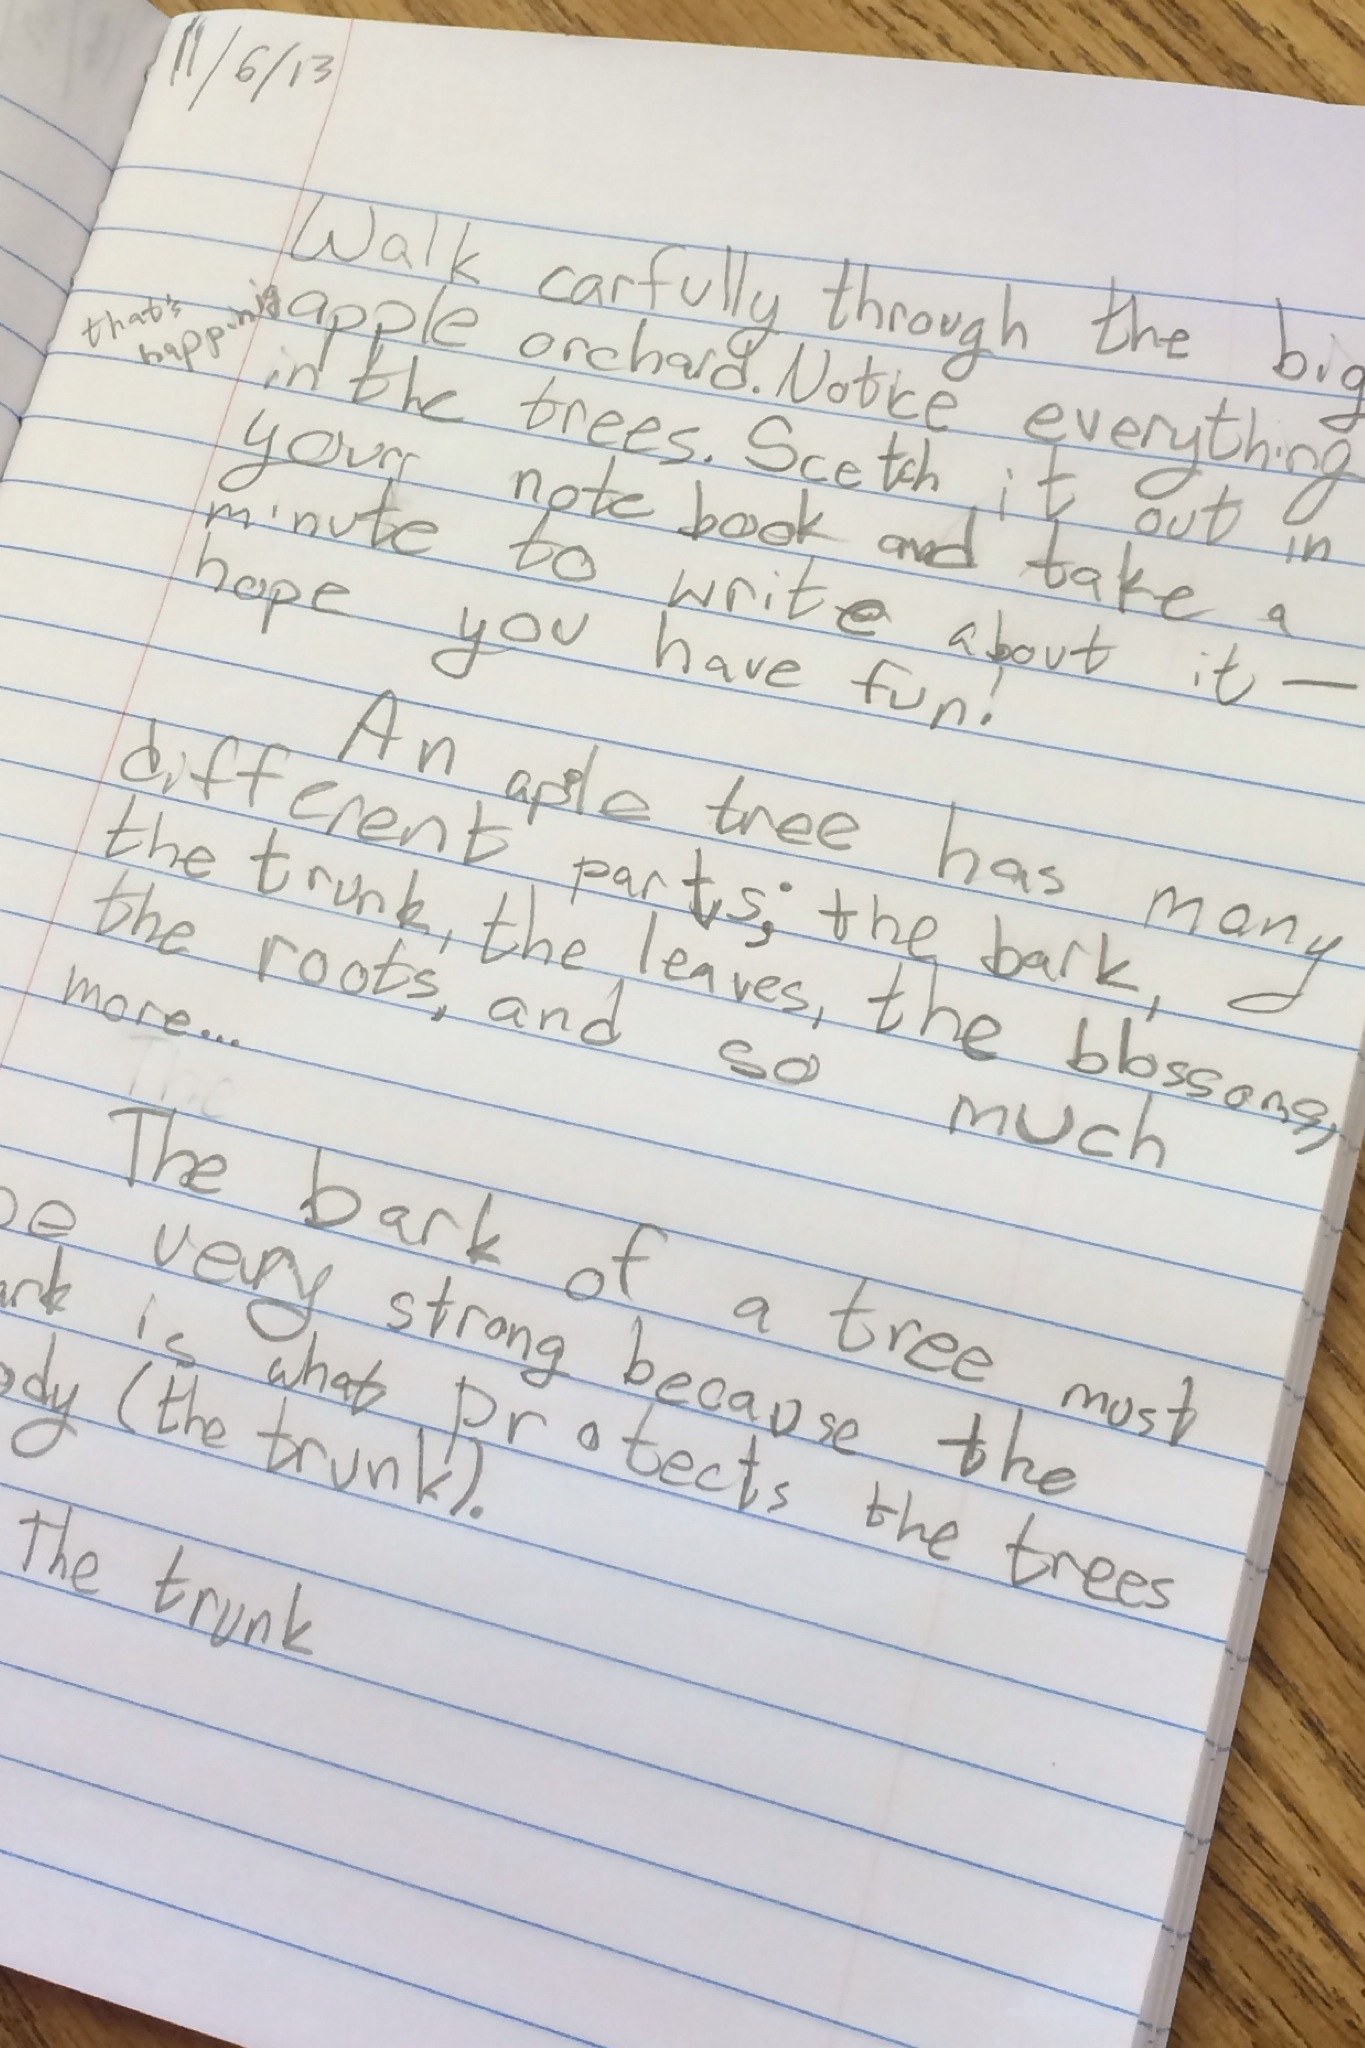 11/6/13
Walk carfully through the big
apple orchard. Notice everything
that's
happening
in the trees. Scetch it out in
your note book and take a
minute to write about it —
hope you have fun!
An aple tree has many
different parts; the bark,
the trunk, the leaves, the blossoms,
the roots, and so much
more...
The
The bark of a tree must
be very strong because the
ark is what protects the trees
ody (the trunk).
The trunk